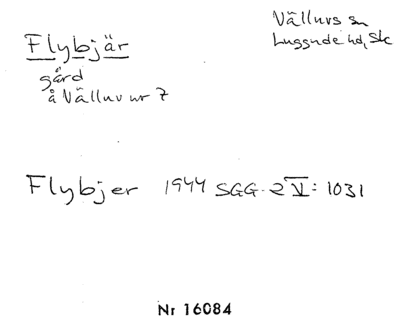 Flybjär
gård
å Välluv nr 7
Välluvs sn
Luggude hd, Sk
Flybjer 1944 SGG. 2 V: 1031
Nr 16084